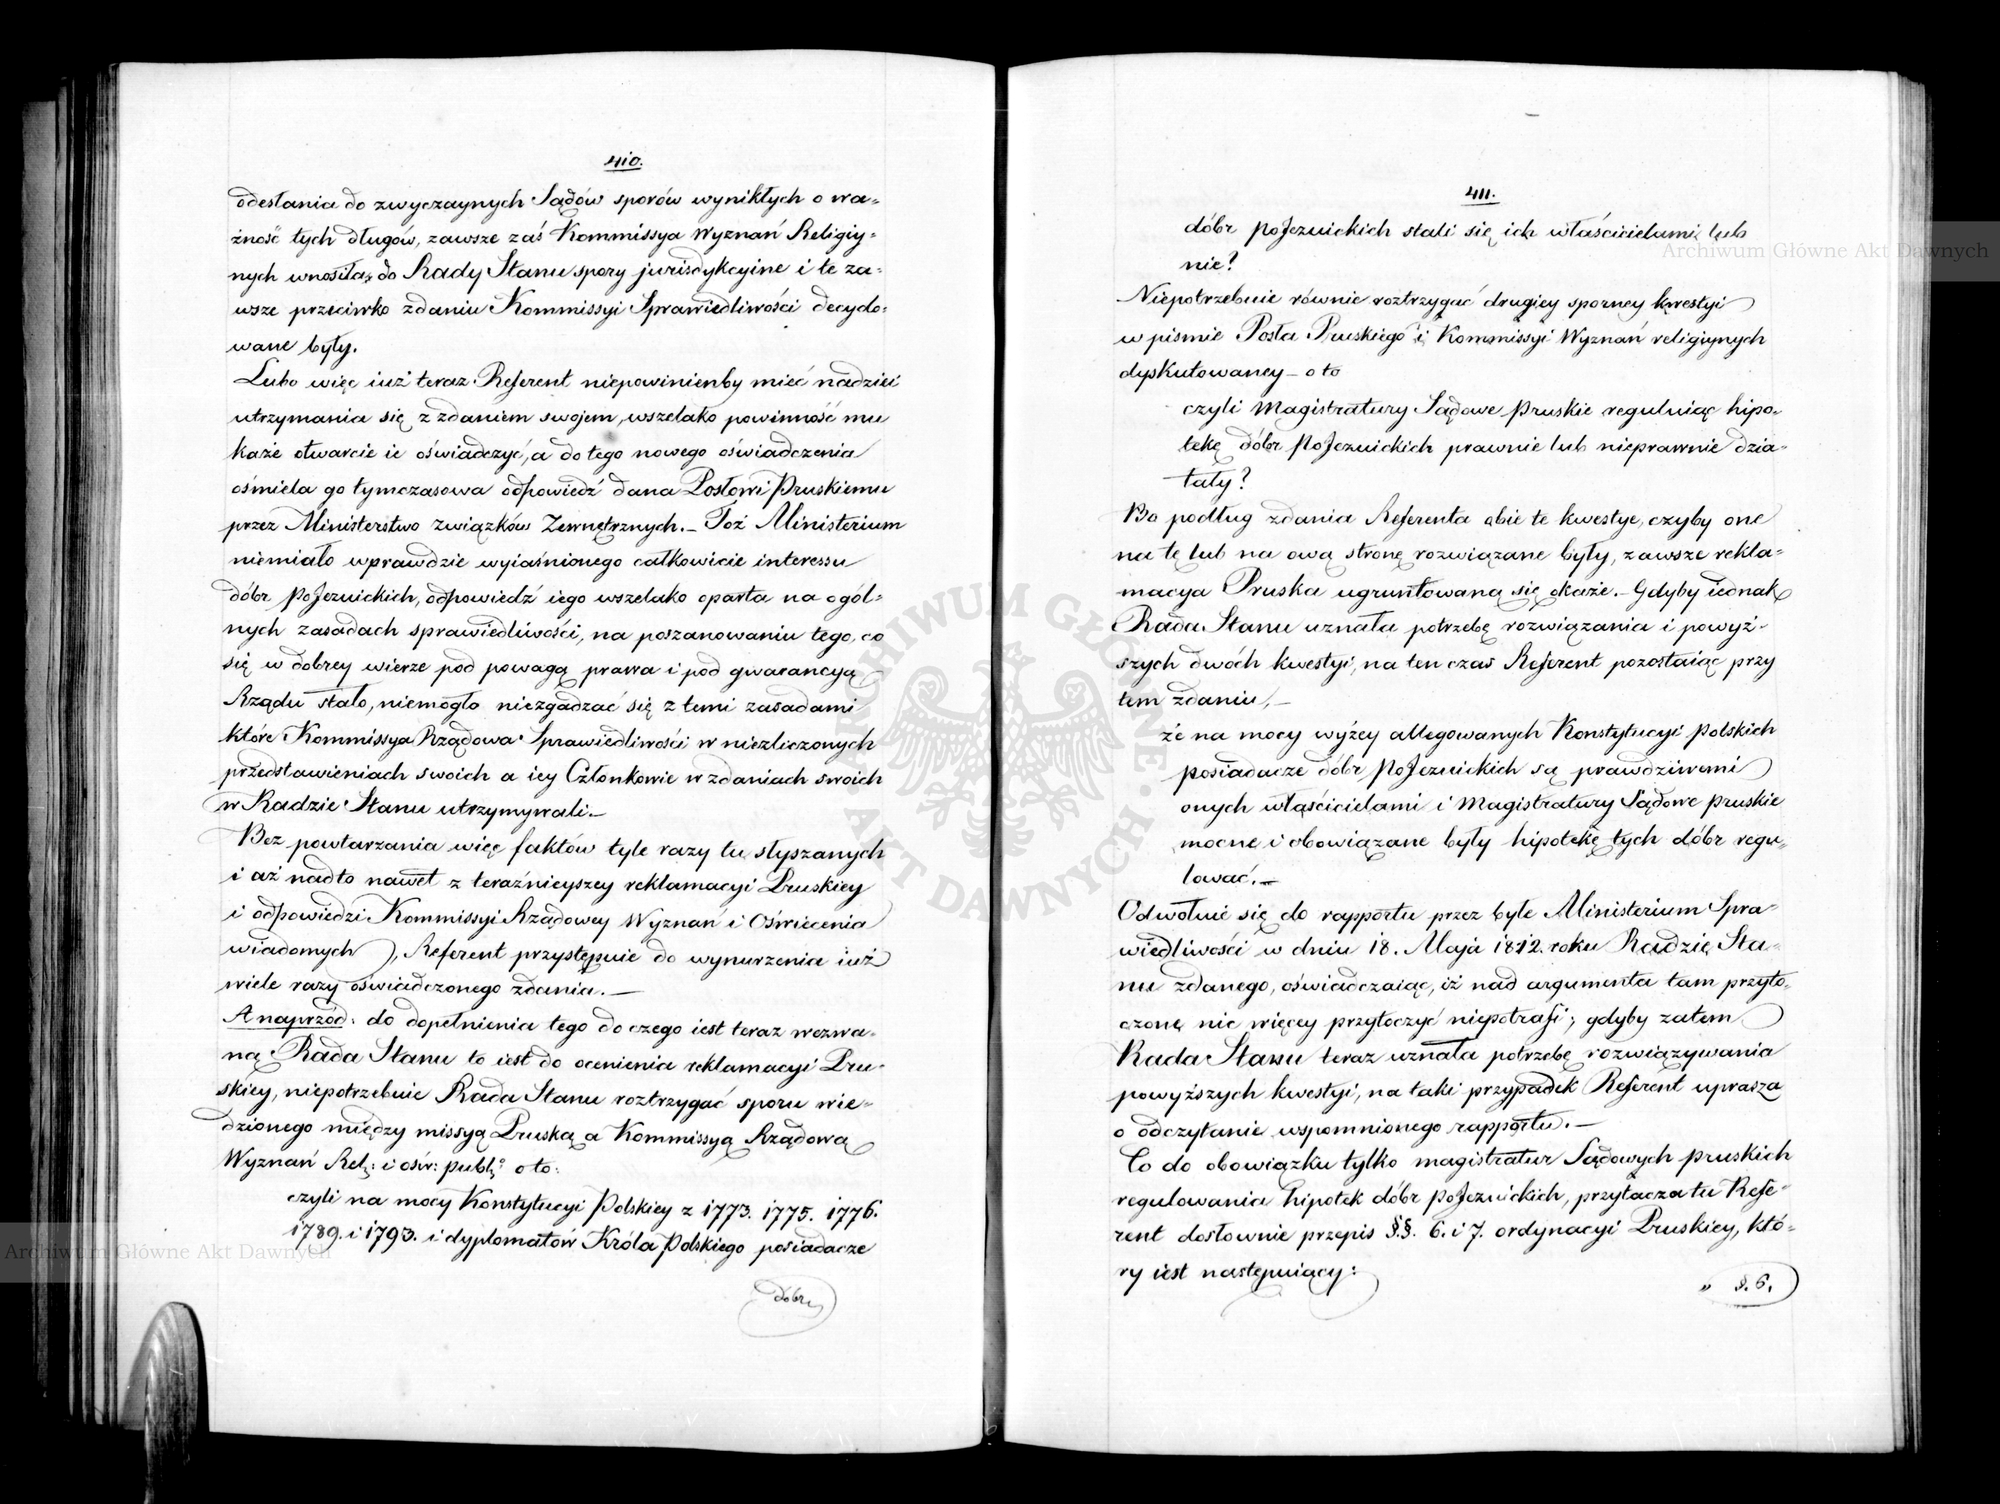 410.
odesłania do zwyczaynych Sądów sporów wynikłych o wa-
żność tych długów, zawsze zaś Kommissya Wyznań Religiy-
nych wnosiła do Rady Stanu spory jurisdykcyine i te za-
wsze przeciwko zdaniu Kommissyi Sprawiedliwości decydo-
wane były.
Lubo więc iuż teraz Referent niepowinienby mieć nadziei
utrzymania się z zdaniem swojem, wszelako powinność mu
każe otwarcie ie oświadczyć, a do tego nowego oświadczenia
ośmiela go tymczasowa odpowiedź dana Posłowi Pruskiemu
przez Ministerstwo związków Zewnętrznych. – Toż Ministerium
niemiało wprawdzie wyiaśnionego całkowicie interessu
dóbr poJezuickich, odpowiedź iego wszelako oparta na ogól-
nych zasadach sprawiedliwości, na poszanowaniu tego, co
się w dobrey wierze pod powagą prawa i pod gwarancyą
Rządu stało, niemogło niezgadzać się z temi zasadami
które Kommissya Rządowa Sprawiedliwości w niezliczonych
przedstawieniach swoich a iey Członkowie w zdaniach swoich
w Radzie Stanu utrzymywali. –
Bez powtarzania więc faktów tyle razy tu słyszanych
i aż nadto nawet z teraźnieyszey reklamacyi Pruskiey
i odpowiedzi Kommissyi Rządowey Wyznań i Oświecenia
wiadomych, Referent przystępuie do wynurzenia iuż
wiele razy oświadczonego zdania. –
A naprzód: do dopełnienia tego do czego iest teraz wezwa-
ną Rada Stanu to iest do ocenienia reklamacyi Pru-
skiey, niepotrzebuie Rada Stanu roztrzygać sporu wie-
dzionego między missyą Pruską a Kommissyą Rządową
Wyznań Rel: i ośw: publ: o to:
czyli na mocy Konstytucyi Polskiey z 1773. 1775. 1776.
1789. i 1793. i dyplomatów Króla Polskiego posiadacze
dóbr
411.
dóbr poJezuickich stali się ich właścicielami lub
nie?
Niepotrzebuie równie roztrzygać drugiey sporney kwestyi
w pismie Posła Pruskiego i Kommissyi Wyznań religiynych
dyskutowaney – o to
czyli Magistratury Sądowe pruskie reguluiąc hipo-
tekę dóbr poJezuickich prawnie lub nieprawnie dzia-
łały?
Bo podług zdania Referenta obie te kwestye, czyby one
na tę lub na ową stronę rozwiązane były, zawsze rekla-
macya Pruska ugruntowaną się okaże. – Gdyby iednak
Rada Stanu uznała potrzebę rozwiązania i powyż-
szych dwóch kwestyi, na ten czas Referent pozostaiąc przy
tem zdaniu, –
że na mocy wyżey allegowanych Konstytucyi polskich
posiadacze dóbr poJezuickich są prawdziwemi
onych właścicielami i Magistratury Sądowe pruskie
mocne i obowiązane były hipotekę tych dóbr regu-
lować. –
Odwołuie się do rapportu przez byłe Ministerium Spra-
wiedliwości w dniu 18. Maja 1812. roku Radzie Sta-
nu zdanego, oświadczaiąc, iż nad argumenta tam przyto-
czone nic więcey przytoczyć niepotrafi; gdyby zatem
Rada Stanu teraz uznała potrzebę rozwiązywania
powyższych kwestyi, na taki przypadek Referent uprasza
o odczytanie wspomnionego rapportu. –
Co do obowiązku tylko magistratur Sądowych pruskich
regulowania hipotek dóbr poJezuickich, przytacza tu Refe-
rent dosłownie przepis §.§. 6. i 7. ordynacyi Pruskiey, któ-
ry iest następuiący:
„ §. 6.
Archiwum Główne Akt Dawnych
Archiwum Główne Akt Dawnych
ARCHIWUM GŁÓWNE AKT DAWNYCH